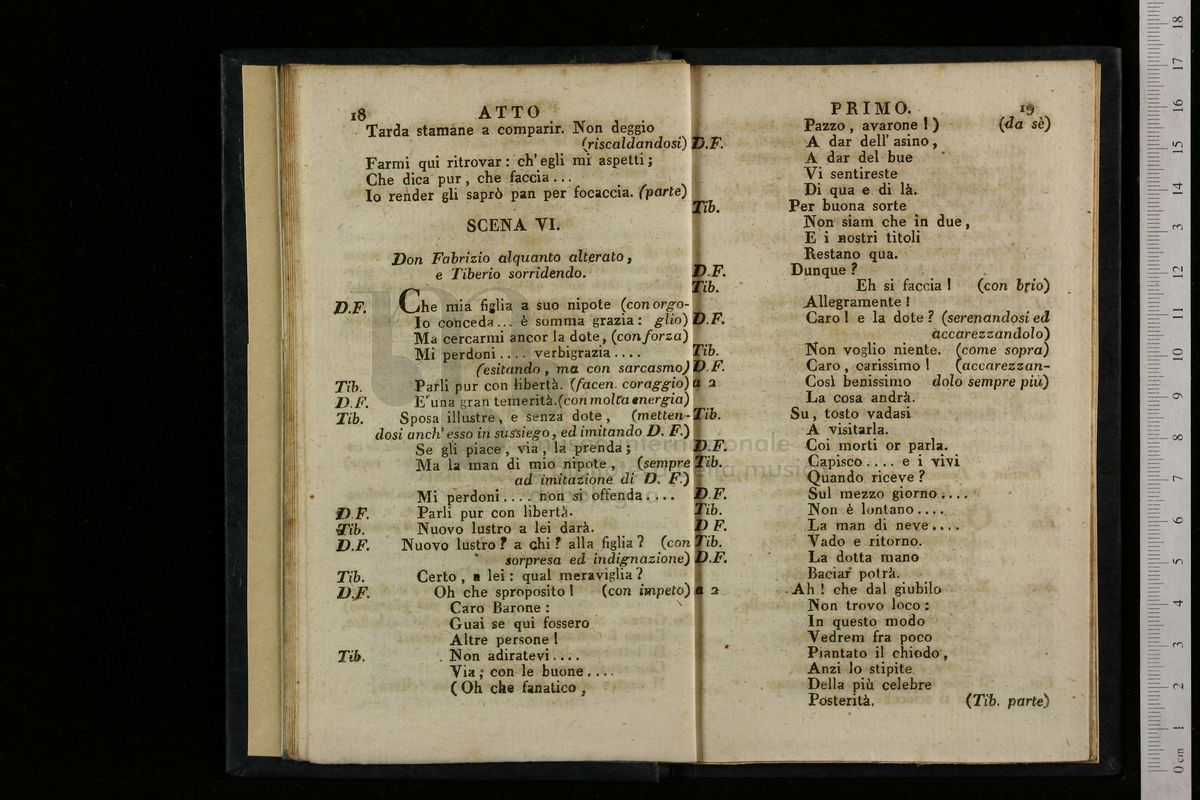 18 ATTO
Tarda stamane a comparir. Non deggio
(riscaldandosi)
Farmi qui ritrovar: ch'egli mi aspetti;
Che dica pur, che faccia...
Io render gli saprò pan per focaccia. (parte)
SCENA VI.
Don Fabrizio alquanto alterato,
e Tiberio sorridendo.
D.F. Che mia figlia a suo nipote (con orgo-
Io conceda... è somma grazia: glio)
Ma cercarmi ancor la dote, (con forza)
Mi perdoni.... verbigrazia....
(esitando, ma con sarcasmo)
Tib. Parli pur con libertà. (facen. coraggio)
D.F. E' una gran temerità. (con molta energia)
Tib. Sposa illustre, e senza dote, (metten-
dosi anch' esso in sussiego, ed imitando D. F.)
Se gli piace, via, la prenda;
Ma la man di mio nipote, (sempre
ad imitazione di D. F.)
Mi perdoni.... non si offenda....
D.F. Parli pur con libertà.
Tib. Nuovo lustro a lei darà.
D.F. Nuovo lustro? a chi? alla figlia? (con
sorpresa ed indignazione)
Tib. Certo, a lei: qual meraviglia?
D.F. Oh che sproposito! (con impeto)
Caro Barone:
Guai se qui fossero
Altre persone!
Tib. Non adiratevi....
Via; con le buone....
(Oh che fanatico,
PRIMO. 19
Pazzo, avarone!) (da sè)
D.F. A dar dell' asino,
A dar del bue
Vi sentireste
Di qua e di là.
Tib. Per buona sorte
Non siam che in due,
E i nostri titoli
Restano qua.
D.F. Dunque?
Tib. Eh si faccia! (con brio)
Allegramente!
D.F. Caro! e la dote? (serenandosi ed
accarezzandolo)
Tib. Non voglio niente. (come sopra)
D.F. Caro, carissimo! (accarezzan-
a 2 Così benissimo dolo sempre più)
La cosa andrà.
Tib. Su, tosto vadasi
A visitarla.
D.F. Coi morti or parla.
Tib. Capisco.... e i vivi
Quando riceve?
D.F. Sul mezzo giorno....
Tib. Non è lontano....
D F. La man di neve....
Tib. Vado e ritorno.
D.F. La dotta mano
Baciar potrà.
a 2 Ah! che dal giubilo
Non trovo loco:
In questo modo
Vedrem fra poco
Piantato il chiodo,
Anzi lo stipite
Della più celebre
Posterità. (Tib. parte)
museo internazionale
e biblioteca della musica
0 cm 1 2 3 4 5 6 7 8 9 10 11 12 13 14 15 16 17 18